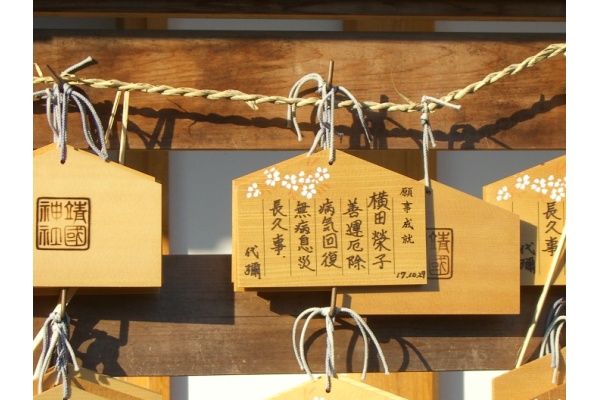 願事成就
横田榮子
善運厄除
病気回復
無病息災
長久事.
代彌
17.10.29
靖國
神社
靖國
長久事
代彌